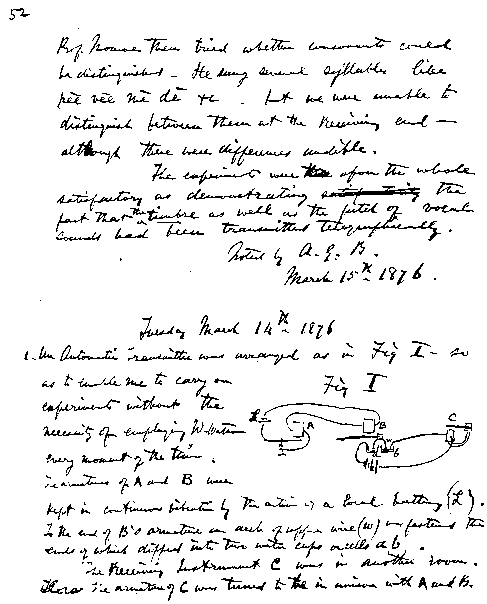 52
Prof. Monroe then tried whether consonants could
be distinguished - He sung several syllables like
pēē vēē mē dē &c. but we were unable to
distinguish between them at the Receiving end —
although there were differences audible.
The experiments were upon the whole
satisfactory as demonstrating the
fact that the timbre as well as the pitch of vocal
sounds had been transmitted telegraphically.
Noted by A. G. B.
March 15th 1876.
Tuesday March 14th 1876
1. An Automatic Transmitter was arranged as in Fig I - so
as to enable me to carry on
experiments without the
necessity of employing Mr Watson
every moment of the time.
Fig I
L A B C
a b
The armatures of A and B were
kept in continuous vibration by the action of a local battery (L).
To the end of B's armature an arch of copper wire (w) was fastened the
ends of which dipped into two water cups or cells a b.
The Receiving Instrument C was in another room.
The armature of C was tuned to be in unison with A and B.